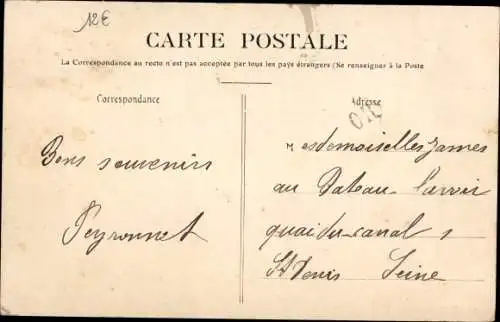 12€
CARTE POSTALE
La Correspondance au recto n'est pas acceptée par tous les pays étrangers (Se renseigner à la Poste
Correspondance
Adresse
Bons souvenirs
Peyronnet
Mesdemoiselles James
au Bateau-Lavoir
quai du canal 1
St Denis Seine